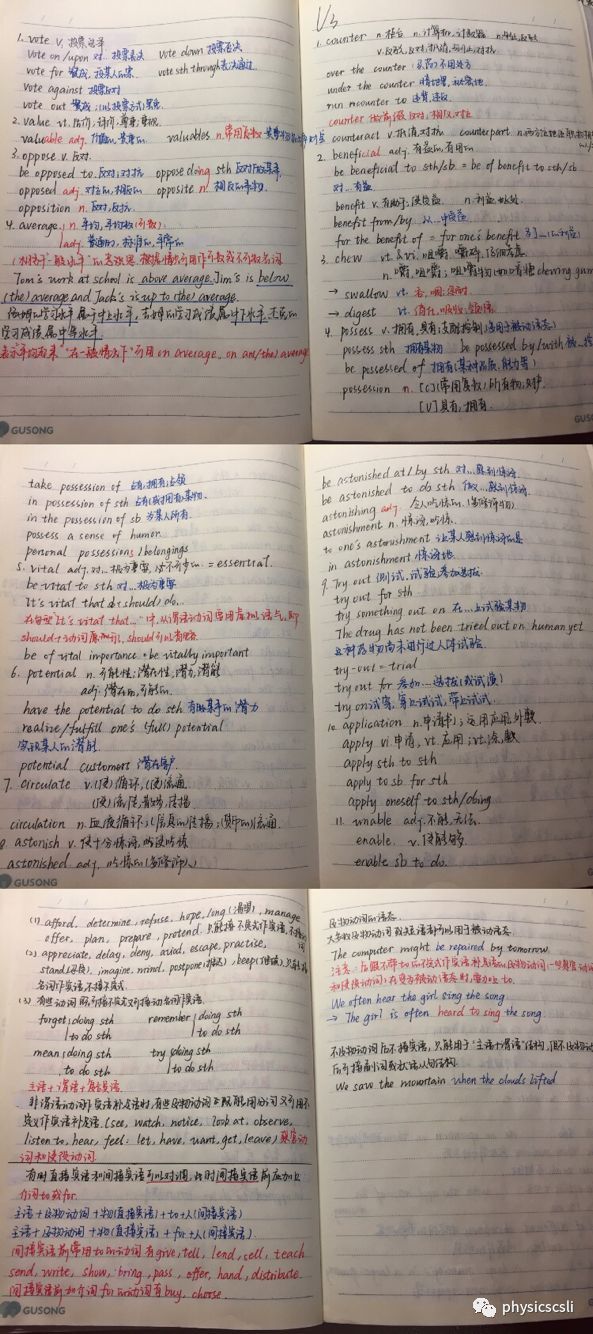 1. vote v. 投票选举
vote on/upon 对…投票表决 vote down 投票否决
vote for 赞成,投某人的票 vote sth through 表决通过
vote against 投票反对
vote out
2. value vt. 估价,评价,尊重,重视
valuable adj. 有价值的,贵重的 valuables n. 常用复数
3. oppose v. 反对
be opposed to 反对,对抗 oppose doing sth 反对做某事
opposed adj. 对立的,相反的 opposite n. 相反的事物
opposition n. 反对,反抗
4. average n. 平均,平均数(可数)
adj. 普通的,标准的,平常的
Tom's work at school is above average. Jim's is below
(the) average and Jack's is up to (the) average.
学习成绩属中等水平
表示平均而来 "在一般情况下" 可用 on average, on an/(the) average
GUSONG
V3
1. counter n. 柜台 n. 计算机,计数器
over the counter
under the counter
run counter to 违背,违反
counter 做前缀 反对,相反,对应
counteract v. 抵消,对抗 counterpart n.
2. beneficial adj. 有益的,有用的
be beneficial to sth/sb = be of benefit to sth/sb
对…有益
benefit v. 有助于,使受益 n. 利益,好处
benefit from/by 从…中受益
for the benefit of = for one's benefit 为了…(的利益)
3. chew vt. & vi. 咀嚼,嚼碎
n. 嚼,咀嚼;咀嚼物(如口香糖 chewing gum
→ swallow vt. 吞,咽
→ digest vt. 消化,吸收,领悟
4. possess v. 拥有,具有;支配,控制(常用于被动语态)
possess sth 拥有某物 be possessed by/with 被…控
be possessed of 拥有(某种品质,能力等)
possession n. [C](常用复数)所有物,财产
[U]具有,拥有.
take possession of 占有,拥有;占领
in possession of sth 占有(或拥有)某物.
in the possession of sb 为某人所有.
possess a sense of humor
personal possessions/belongings
5. vital adj. 对…极为重要,必不可少的. = essential.
be vital to sth 对…极为重要
It's vital that …(should) do…
在句型 It's vital that…"中,从句谓语动词常用虚拟语气,即
should+动词原形,should可以省略
be of vital importance = be vitally important
6. potential n. 可能性;潜在性,潜力,潜能
adj. 潜在的,可能的.
have the potential to do sth 有做某事的潜力
realize/fulfill one's (full) potential
实现某人的潜能.
potential customers 潜在客户
7. circulate v. (使)循环,(使)流通
(使)流传,散布,传播
circulation n. 血液循环;(信息的)传播;(货币的)流通.
8. astonish v. 使十分惊讶,使吃惊
astonished adj. 吃惊的(多修饰人)
GUSONG
be astonished at/by sth 对…感到惊讶.
be astonished to do sth 做…感到惊讶.
astonishing adj. 令人吃惊的.(多修饰物)
astonishment n. 惊讶,吃惊.
to one's astonishment 让某人感到惊讶的是
in astonishment 惊讶地.
9. Try out 测试,试验,参加选拔.
try out for sth
try something out on 在…上试验某物
The drug has not been tried out on human yet
这种药物尚未进行过人体试验.
try-out = trial
try out for 参加…选拔(或试演)
try on 试穿,
10. application n. 申请书;运用,应用,外敷
apply vi 申请, vt. 应用;vt. 涂,敷
apply sth to sth
apply to sb for sth
apply oneself to sth/doing
11. unable adj. 不能,无法.
enable. v. 使能够
enable sb to do.
(1) afford, determine, refuse, hope, long (渴望), manage
offer, plan, prepare, pretend 只能接不定式作宾语,
(2) appreciate, delay, deny, avoid, escape, practise,
stand(忍受), imagine, mind, postpone(推迟), keep(继续),
名词作宾语,不接不定式.
(3) 有些动词既可接不定式又可接动名词作宾语.
forget doing sth remember doing sth
to do sth to do sth
mean doing sth try doing sth
to do sth to do sth
主语+谓语+复合宾语.
非谓语动词作宾语补足语时,有些及物动词
定式作宾语补足语. (see, watch, notice, look at, observe,
listen to, hear, feel; let, have, want, get, leave) 感官动
词和使役动词.
有时直接宾语和间接宾语可以对调,此时间接宾语前应加上
介词 to 或 for.
主语+及物动词+物(直接宾语)+to+人(间接宾语)
主语+及物动词+物(直接宾语)+for+人(间接宾语).
间接宾语前常用 to 的动词有 give, tell, lend, sell, teach
send, write, show, bring, pass, offer, hand, distribute.
间接宾语前加介词 for 的动词有 buy, choose.
GUSONG
及物动词的语态.
大多数及物动词或短语都可以用于被动语态.
The computer might be repaired by tomorrow.
We often hear the girl sing the song.
→ The girl is often heard to sing the song.
不及物动词后不接宾语,只能用于"主语+谓语"结构,
后可接副词或状语从句结构.
We saw the mountain when the clouds lifted
physicscsli